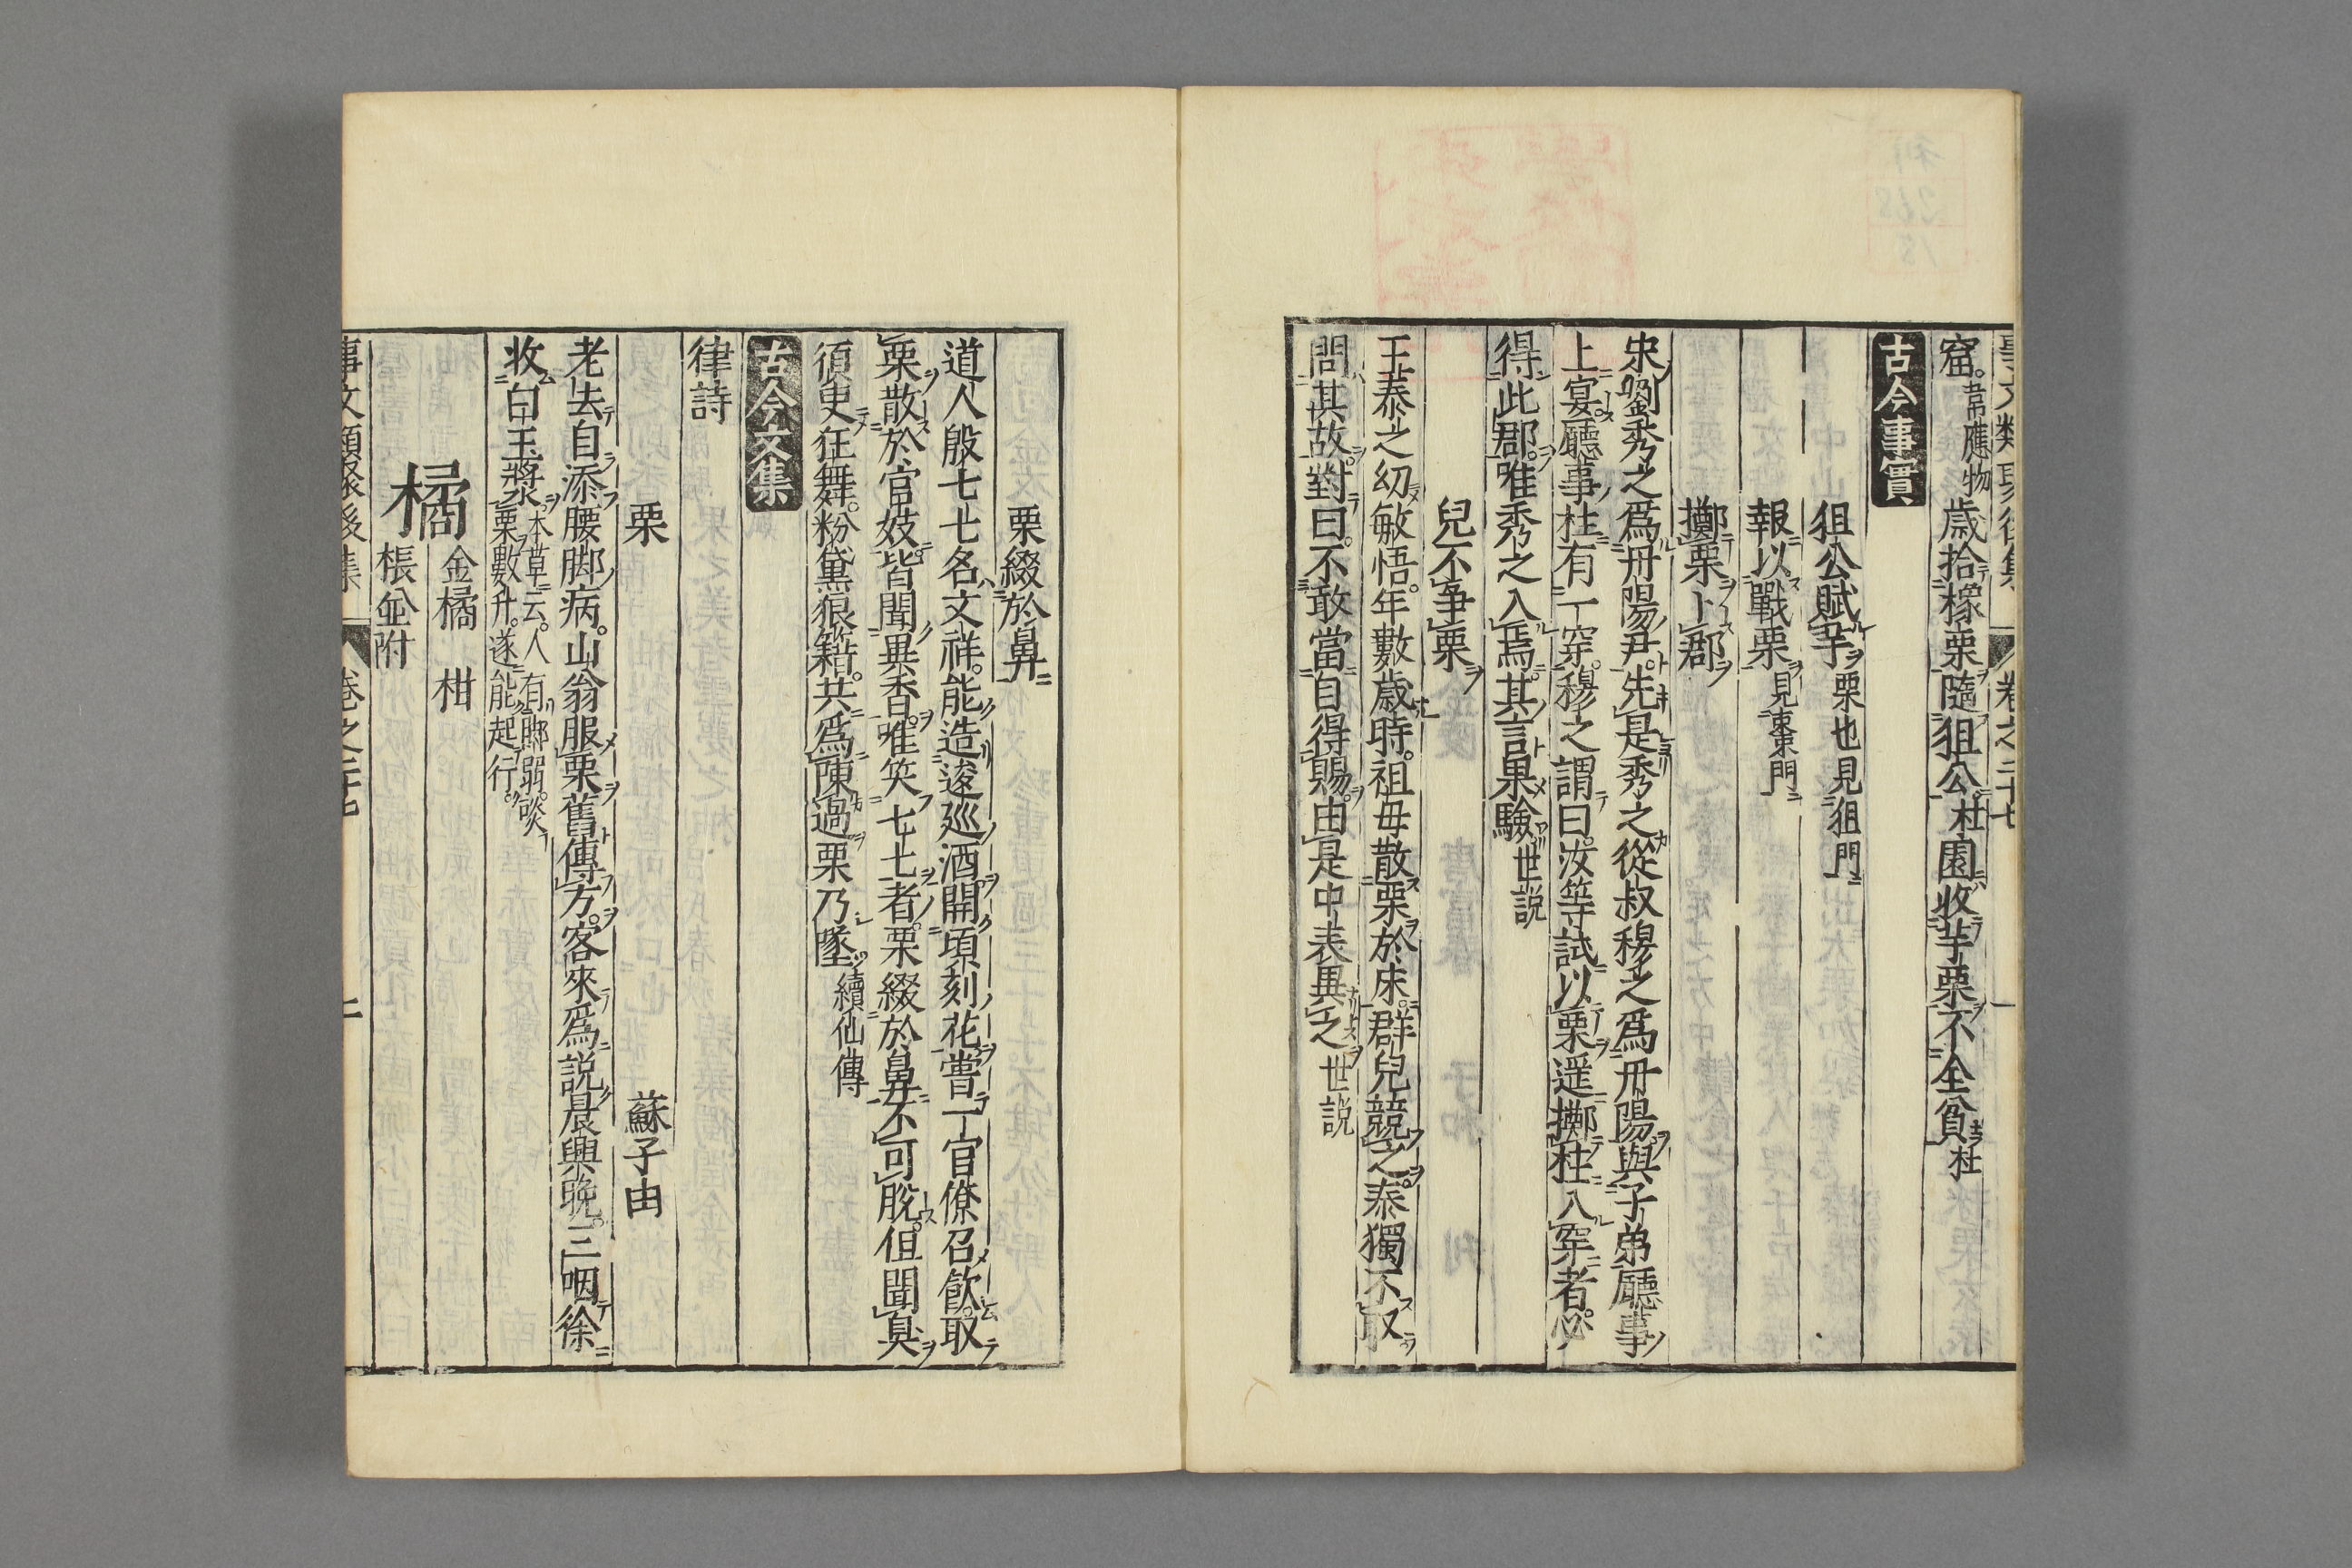 事文類聚後集 卷之二十七
窟韋應物歲拾橡栗隨狙公杜園收芋栗不全貧杜
古今事實
狙公賦芋栗也見狙門
報以戰栗見東門
擲栗卜郡
宋劉秀之爲丹陽尹先是秀之從叔穆之爲丹陽與子弟廳事
上宴廳事柱有一穿穆之謂曰汝等試以栗遥擲柱入穿者必
得此郡唯秀之入焉其言果驗世說
兒不爭栗
王泰之幼敏悟年數歲時祖母散栗於床群兒競之泰獨不取
問其故對曰不敢當自得賜由是中表異之世說
栗綴於鼻
道人殷七七名文祥能造逡巡酒開頃刻花嘗一官僚召飲取
栗散於官妓皆聞異香唯笑七七者栗綴於鼻不可脫但聞臭
須臾狂舞粉黛狼籍共爲陳過栗乃墜續仙傳
古今文集
律詩
栗 蘇子由
老去自添腰脚病山翁服栗舊傳方客來爲說晨興晚三咽徐
收白玉漿本草云人有脚弱啖栗數升遂能起行
橘 金橘 柑 棖並附
事文類聚後集 卷之二十七 二